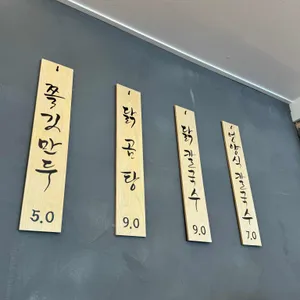 쫄깃만두
5.0
닭곰탕
9.0
닭칼국수
9.0
칼국수
7.0